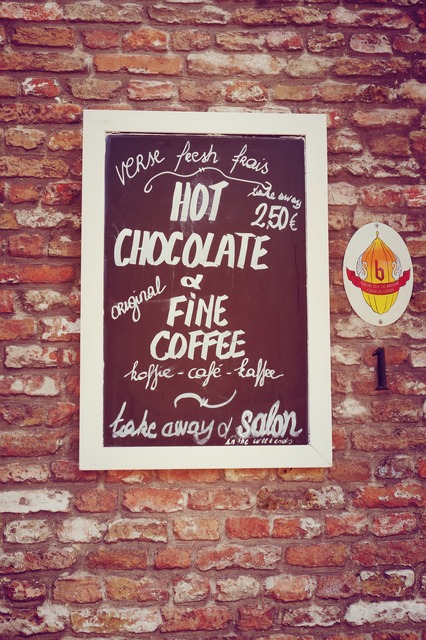 verse fresh frais
HOT
take away
2,50€
CHOCOLATE
&
original
FINE
COFFEE
koffie - café - kaffee
take away & salon
in the weekends
b
1